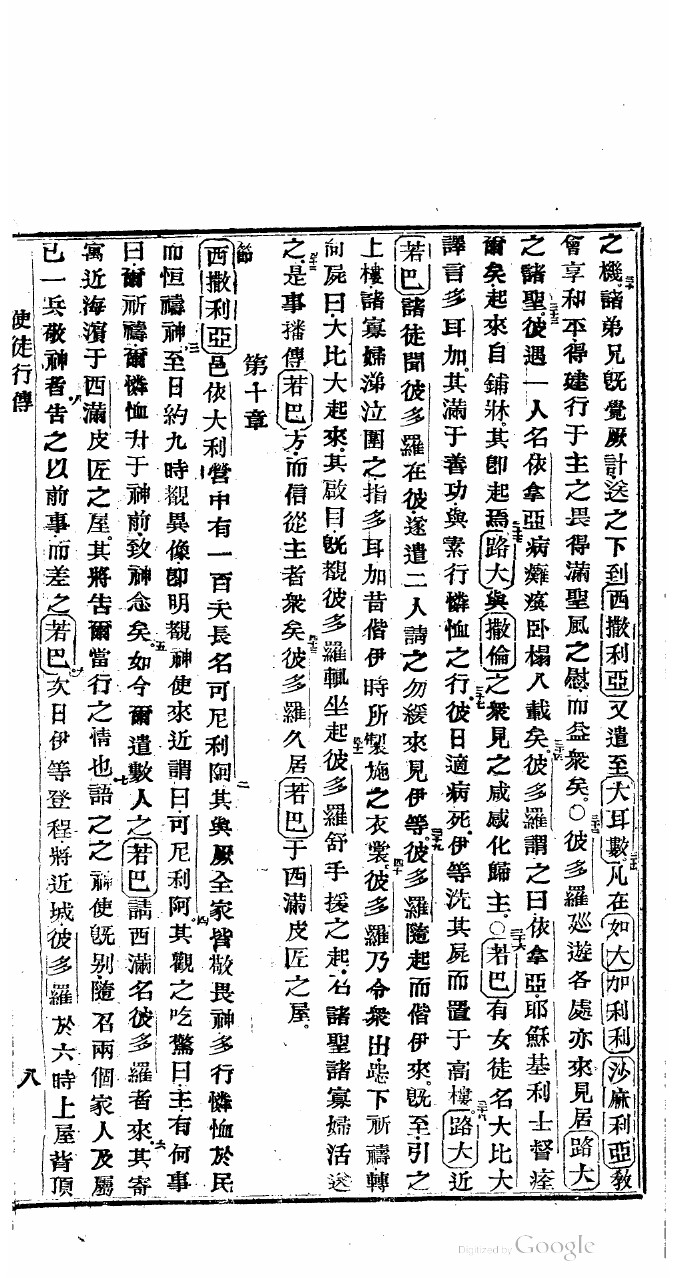 之機諸弟兄旣覺厥計送之下到西撒利亞又遣至大耳數凡在如大加利利沙麻利亞敎
會享和平得建行于主之畏得滿聖風之慰而益衆矣○彼多羅廵遊各處亦來見居路大
之諸聖彼遇一人名依拿亞病癱瘓卧榻八載矣彼多羅謂之曰依拿亞耶穌基利士督痊
爾矣起來自鋪牀其卽起焉路大與撒倫之衆見之咸感化歸主○若巴有女徒名大比大
譯言多耳加其滿于善功與素行憐恤之行彼日適病死伊等洗其屍而置于高樓路大近
若巴諸徒聞彼多羅在彼遂遣二人請之勿緩來見伊等彼多羅隨起而偕伊來旣至引之
上樓諸寡婦涕泣圍之指多耳加昔偕伊時所製施之衣裳彼多羅乃令衆出跪下祈禱轉
向屍曰大比大起來其啟目旣覩彼多羅輒坐起彼多羅舒手援之起召諸聖諸寡婦活送
之是事播傳若巴方而信從主者衆矣彼多羅久居若巴于西滿皮匠之屋
第十章
節西撒利亞邑依大利營中有一百夫長名可尼利阿其與厥全家皆敬畏神多行憐恤於民
而恒禱神至日約九時覩異像卽明覩神使來近謂曰可尼利阿其觀之吃驚曰主有何事
曰爾祈禱爾憐恤升于神前致神念矣如今爾遣數人之若巴請西滿名彼多羅者來其寄
寓近海濱于西滿皮匠之屋其將告爾當行之情也語之之神使旣別隨召兩個家人及屬
己一兵敬神者告之以前事而差之若巴次日伊等登程將近城彼多羅於六時上屋背頂
使徒行傳
八
Digitized by Google